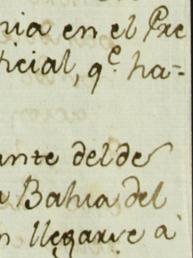 nia en el Pre
ficial, q.e ha=
ante del de
a Bahia del
n llegarse à